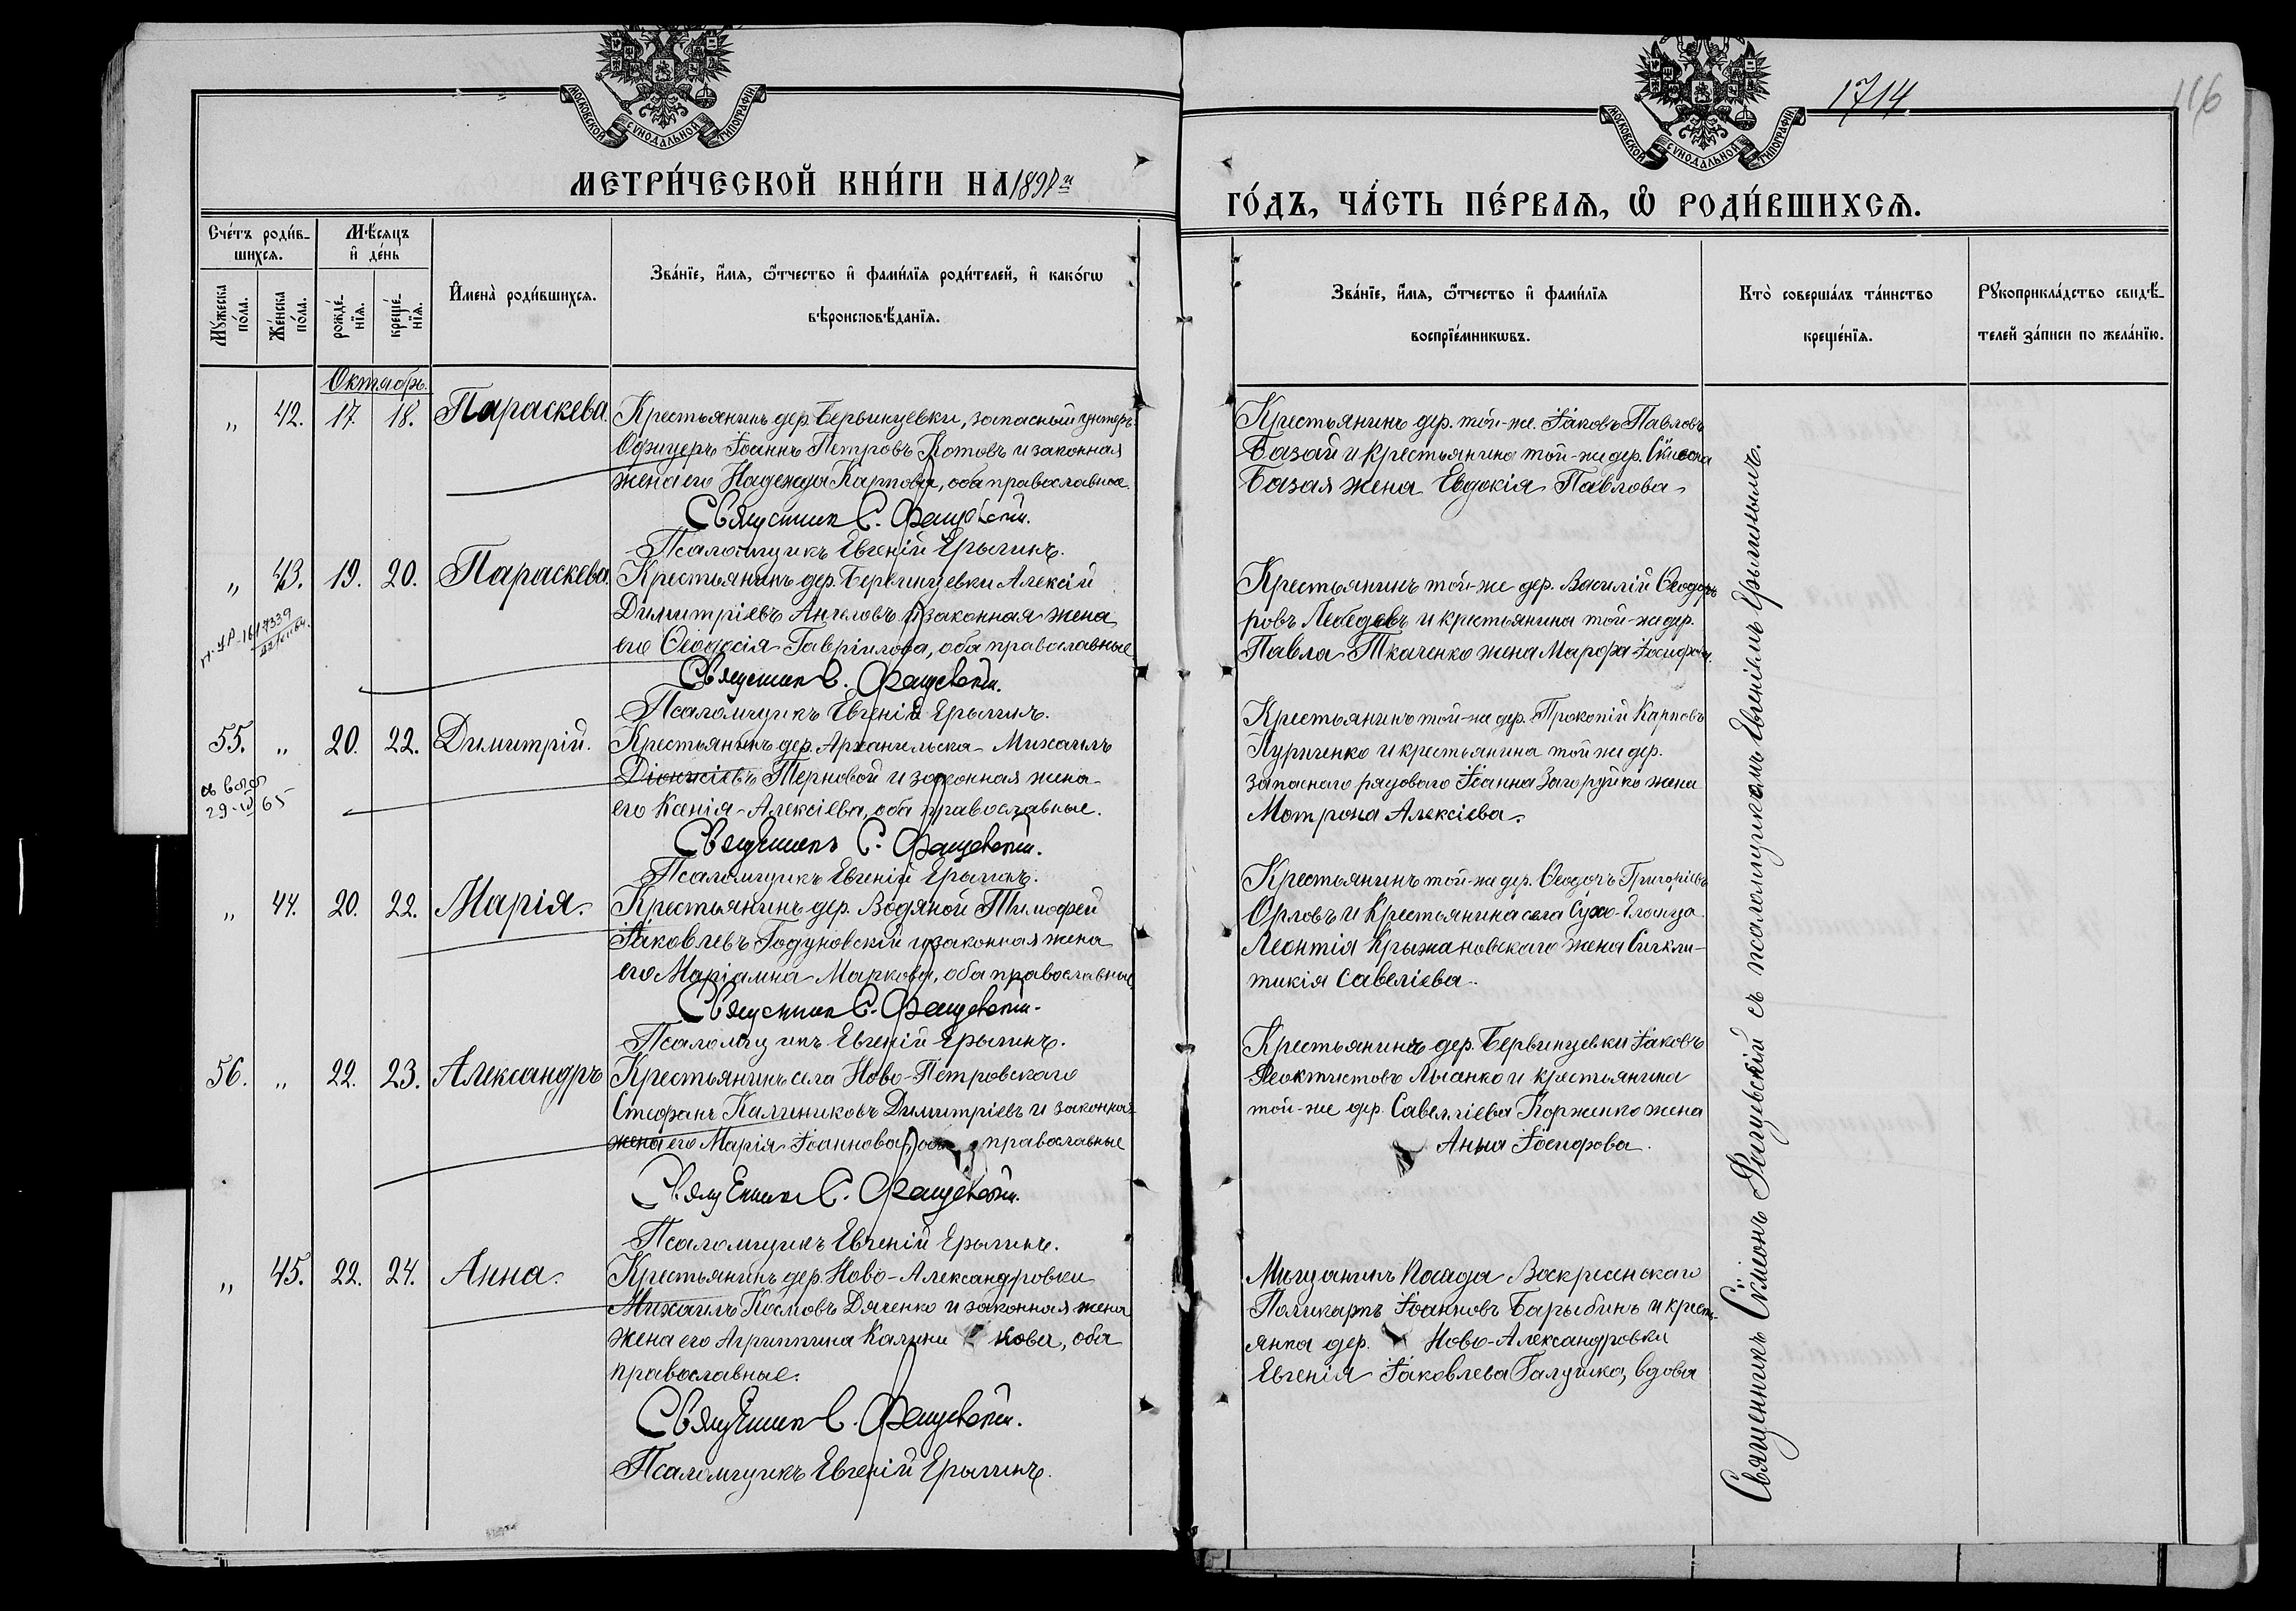 1714
116
МОСКОВСКОЙ СУНОДАЛЬНОЙ ТИПОГРАФІИ
МОСКОВСКОЙ СУНОДАЛЬНОЙ ТИПОГРАФІИ
МЕТРИ́ЧЕСКОЙ КНИ́ГИ НА
ГО́ДЪ, ЧА́СТЬ ПЕ́РВАѦ, Ѡ РОДИ́ВШИХСѦ.
Сче́тъ роди́в-
шихсѧ.
Мѣ́сѧцъ
и҆ де́нь
Му́жеска
по́ла.
Же́нска
по́ла.
рожде́-
нїѧ.
креще́-
нїѧ.
И҆мена̀ роди́вшихсѧ.
Зва́нїе, и҆́мѧ, ѻ҆́тчество и҆ фами́лїѧ роди́телей, и҆ како́гѡ
вѣроисповѣ́данїѧ.
Зва́нїе, и҆́мѧ, ѻ҆́тчество и҆ фами́лїѧ
воспрїе́мникѡвъ.
Кто̀ соверша́лъ та́инство
креще́нїѧ.
Рукоприкла́дство свидѣ́-
телей за́писи по жела́нїю.
Октябрь.
„ 42. 17. 18. Параскева.
Крестьянинъ дер. Бервинцевки, запасный унтеръ-
Офицеръ Іоаннъ Петровъ Котовъ и законная
жена его Надежда Карпова, оба православные.
Священник С. Фащевскій.
Псаломщикъ Евгеній Ерыгинъ.
Крестьянинъ дер. той-же. Іаковъ Павловъ
Базай и крестьянина той-же дер.
Базая жена Евдокія Павлова
„ 43. 19. 20. Параскева.
Крестьянинъ дер. Бервинцевки Алексій
Димитріевъ Ангеловъ и законная жена
его Ѳеодосія Гавріилова, оба православные
Священник С. Фащевскій.
Псаломщикъ Евгеній Ерыгинъ.
Крестьянинъ той-же дер. Василій Ѳеодо-
ровъ Лебедевъ и крестьянина той-же дер.
Павла Ткаченко жена Марѳа Іосифова.
55. „ 20. 22. Димитрій.
29-IV 65
Крестьянинъ дер. Архангельска Михаилъ
Діонисіевъ Терновой и законная жена
его Ксенія Алексіева, оба православные.
Священникъ С. Фащевскій.
Псаломщикъ Евгеній Ерыгинъ.
Крестьянинъ той-же дер. Прокопій Карповъ
Куриченко и крестьянина той же дер.
запаснаго рядоваго Іоанна Загоруйко жена
Мотрона Алексіева.
„ 44. 20. 22. Марія.
Крестьянинъ дер. Водяной Тимофей
Іаковлевъ Годуновскій и законная жена
его Маріамна Маркова, оба православные
Священник С. Фащевскій.
Псаломщикъ Евгеній Ерыгинъ.
Крестьянинъ той-же дер. Ѳеодоръ Григоріевъ
Орловъ и Крестьянина села Сухо-Еланца
Леонтія Крыжановскаго жена Сигкли-
тикія Савеліева.
56. „ 22. 23. Александръ
Крестьянинъ села Ново-Петровскаго
Стефанъ Калиниковъ Димитріевъ и законная
жена его Марія Іоаннова, оба православные
Священник С. Фащевскій.
Псаломщикъ Евгеній Ерыгинъ.
Крестьянинъ дер. Бервинцевки Іаковъ
Феоктистовъ Лысанко и крестьянина
той-же дер. Савелліева Корженко жена
Анна Іосифова.
„ 45. 22. 24. Анна.
Крестьянинъ дер. Ново-Александровки
Михаилъ Космовъ Дяченко и законная жена
жена его Агриппина Калини кова, оба
православные.
Священник С. Фащевскій.
Псаломщикъ Евгеній Ерыгинъ.
Мѣщанинъ Посада Воскресенскаго
Поликарпъ Іоанновъ Барыбинъ и крест-
янка дер. Ново-Александровки
Евгенія Іаковлева Галушко, вдова
Священникъ Сѵмеонъ Фащевскій съ псаломщикомъ Евгеніемъ Ерыгинымъ.